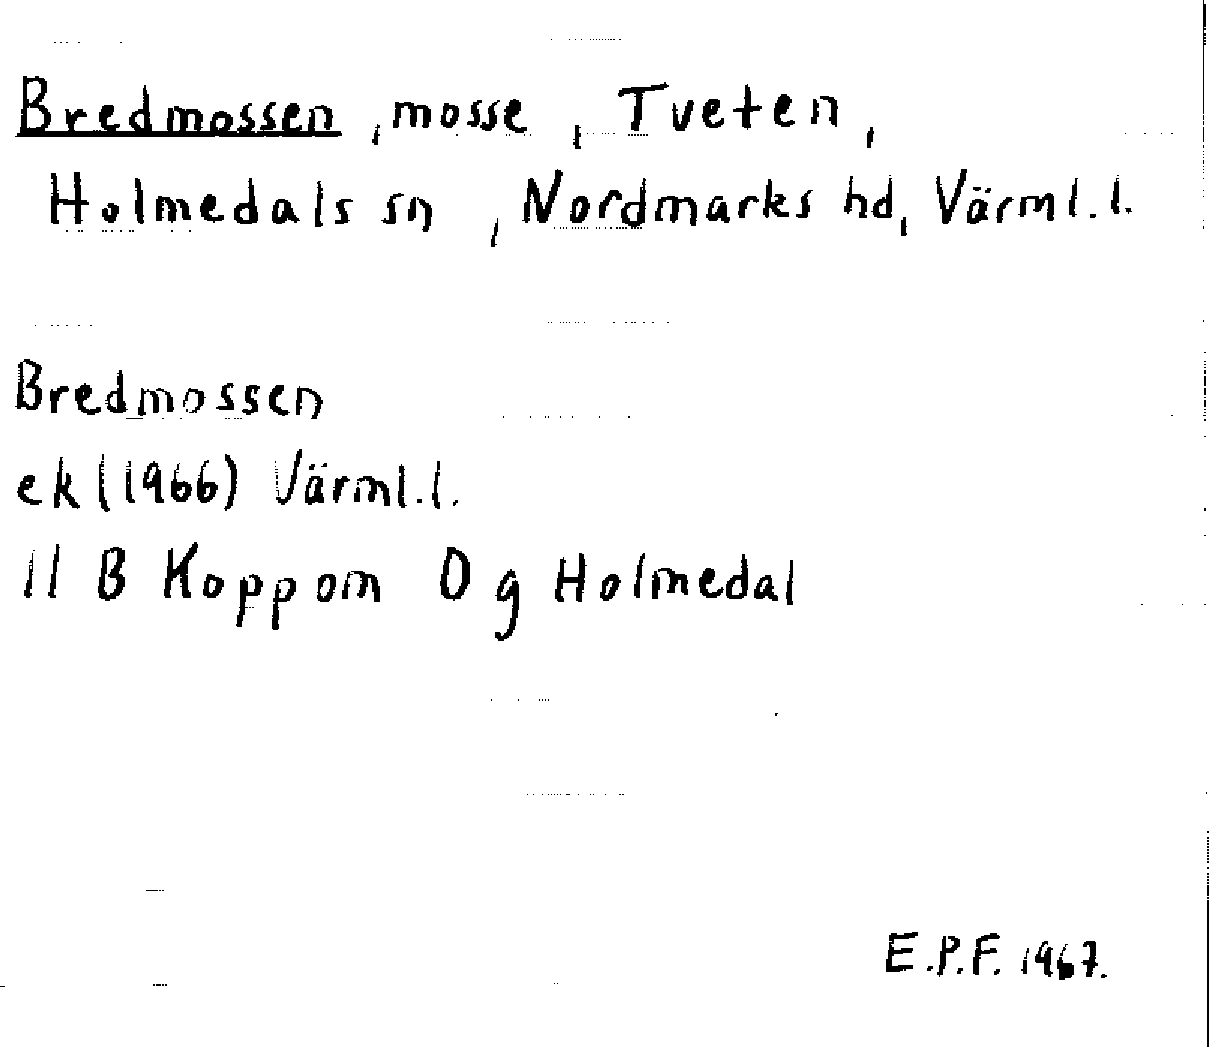 Bredmossen, mosse, Tveten,
Holmedals sn, Nordmarks hd, Värml.l.
Bredmossen
ek (1966) Värml.l.
11 B Koppom 0 g Holmedal
E.P.F. 1967.